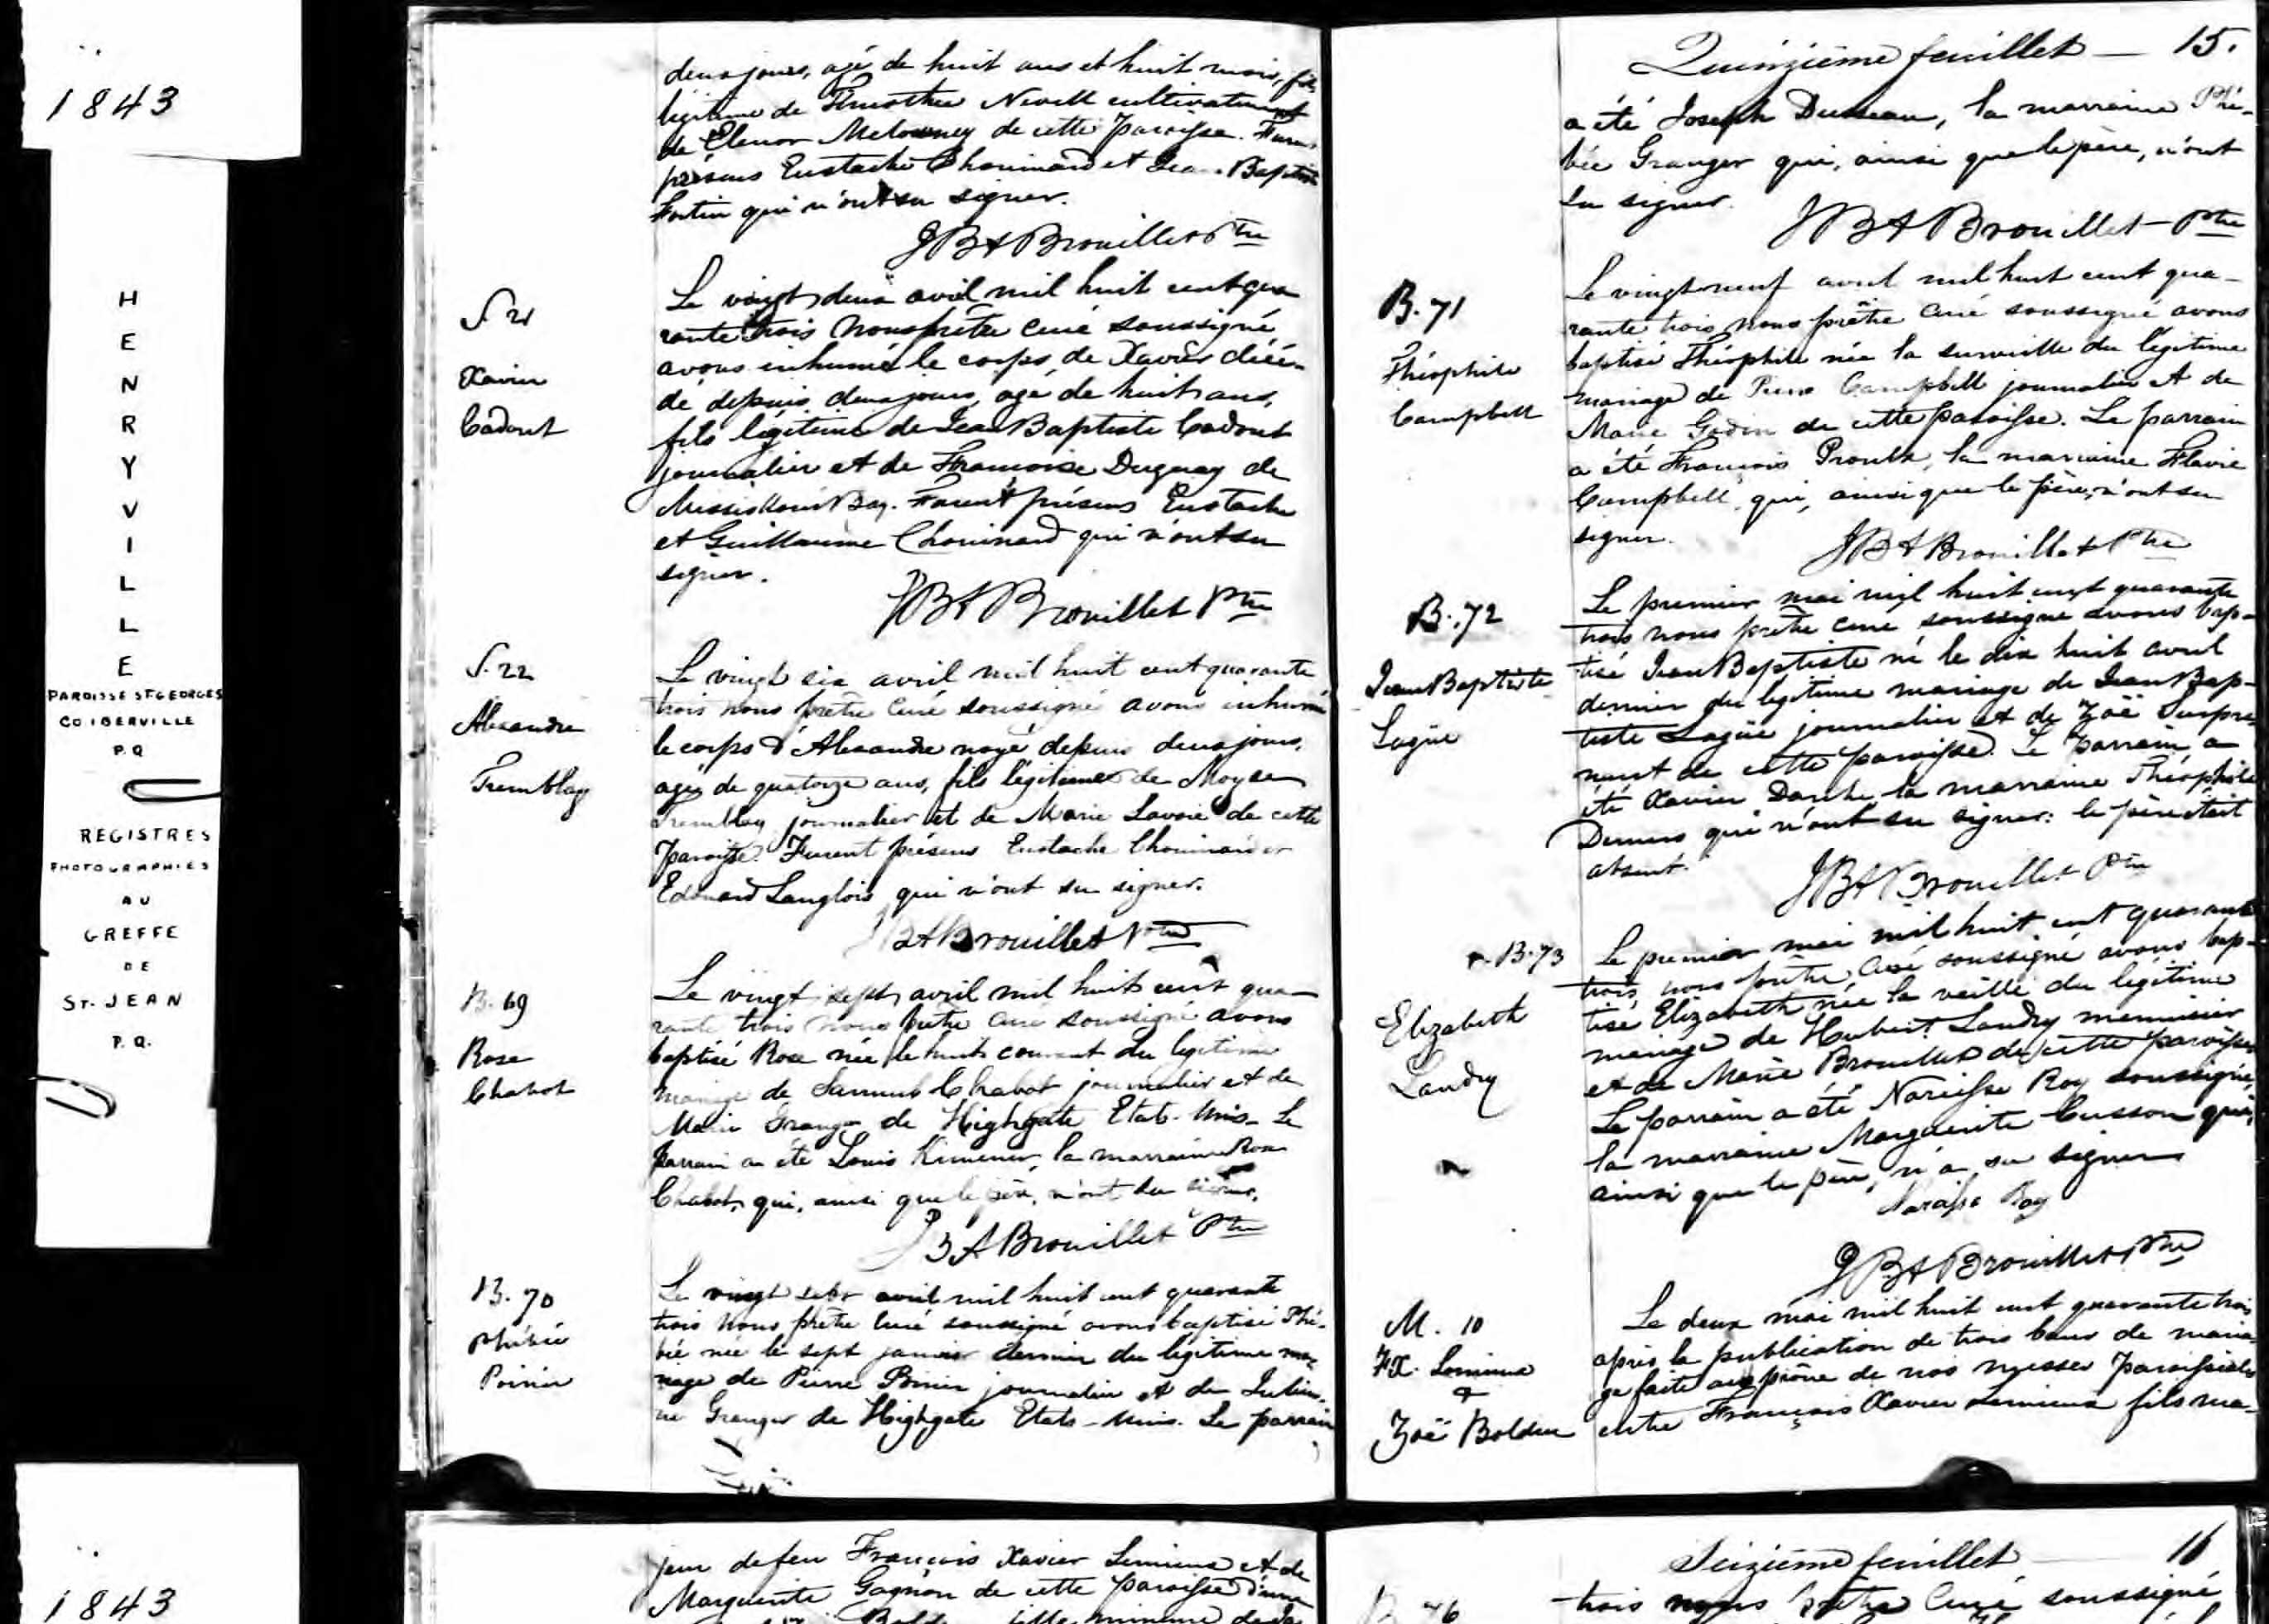 1843
HENRYVILLE
PAROISSE ST GEORGES
CO IBERVILLE
P.Q
REGISTRES
PHOTOGRAPHIES
AU
GREFFE
DE
ST-JEAN
P.Q.
1843
deux jours, agé de huit ans et huit mois, fils
légitime de Timothee Nevell cultivateur et
de Elenor de cette paroisse. Furent
présens Eustache Chouinard et Jean-Baptiste
Fortin qui n'ont su signer.
JBA Brouillet Ptre
S. 21
Xavier
Cadoret
Le vingt deux avril mil huit cent qua
rante trois nous prêtre curé soussigné
avons inhumé le corps de Xavier décé-
dé depuis deux jours, agé de huit ans,
fils légitime de Jean Baptiste Cadoret
journalier et de Francoise Duguay de
Missiskoui Bay. Furent présens Eustache
et Guillaume Chouinard qui n'ont su
signer.
JBA Brouillet Ptre
S. 22
Alexandre
Tremblay
Le vingt six avril mil huit cent quarante
trois nous prêtre curé soussigné avons inhumé
le corps d'Alexandre noyé depuis deux jours,
agé de quatorze ans, fils légitime de Moyse
Tremblay journalier et de Marie Lavoie de cette
paroisse. Furent présens Eustache Chouinard et
Edouard Langlois qui n'ont su signer.
JBA Brouillet Ptre
B. 69
Rose
Chabot
Le vingt sept avril mil huit cent qua-
rante trois nous prêtre curé soussigné avons
baptisé Rose née le huit courant du légitime
mariage de Samuel Chabot journalier et de
Marie Granger de Highgate Etats-Unis. Le
parrain a été Louis la marraine Rose
Chabot, qui, ainsi que le père, n'ont su signer.
JBA Brouillet Ptre
B. 70
Phébée
Poirier
Le vingt sept avril mil huit cent quarante
trois nous prêtre curé soussigné avons baptisé Phé-
bée née le sept janvier dernier du légitime ma-
riage de Pierre Poirier journalier et de Julien-
ne Granger de Highgate Etats-Unis. Le parrain
Quinzième feuillet — 15.
a été Joseph la marraine Phé-
bée Granger qui, ainsi que le père, n'ont
su signer.
JBA Brouillet Ptre
B. 71
Théophile
Campbell
Le vingt neuf avril mil huit cent qua-
rante trois nous prêtre curé soussigné avons
baptisé Théophile née la surveille du légitime
mariage de Pierre Campbell journalier et de
Marie Godin de cette paroisse. Le parrain
a été François Proulx, la marraine Flavie
Campbell, qui, ainsi que le père, n'ont su
signer.
JBA Brouillet Ptre
B. 72
Jean Baptiste
Lagüe
Le premier mai mil huit cent quarante
trois nous prêtre curé soussigné avons bap-
tisé Jean Baptiste né le dix huit avril
dernier du légitime mariage de Jean Bap-
tiste Lagüe journalier et de Zoë Surpre-
nant de cette paroisse. Le parrain a
été Xavier la marraine Théophile
Demers qui n'ont su signer: le père était
absent.
JBA Brouillet Ptre
B. 73
Elizabeth
Landry
Le premier mai mil huit cent quarante
trois, nous prêtre curé soussigné avons bap-
tisé Elizabeth née la veille du légitime
mariage de Hubert Landry menuisier
et de Marie Brouillet de cette paroisse
Le parrain a été Narcisse Roy soussigné,
la marraine Marguerite Cusson qui,
ainsi que le père, n'a su signer
Narcisse Roy
JBA Brouillet Ptre
M. 10
FX. Lemieux
&
Zoë Bolduc
Le deux mai mil huit cent quarante trois
après la publication de trois bans de maria
ge faite au prône de nos messes paroissiales
entre François Xavier Lemieux fils ma-
jeur de feu François Xavier Lemieux et de
Marguerite Gagnon de cette paroisse d'une
fille mineure de
Seizième feuillet 16
B. 76
trois nous prêtre curé soussigné